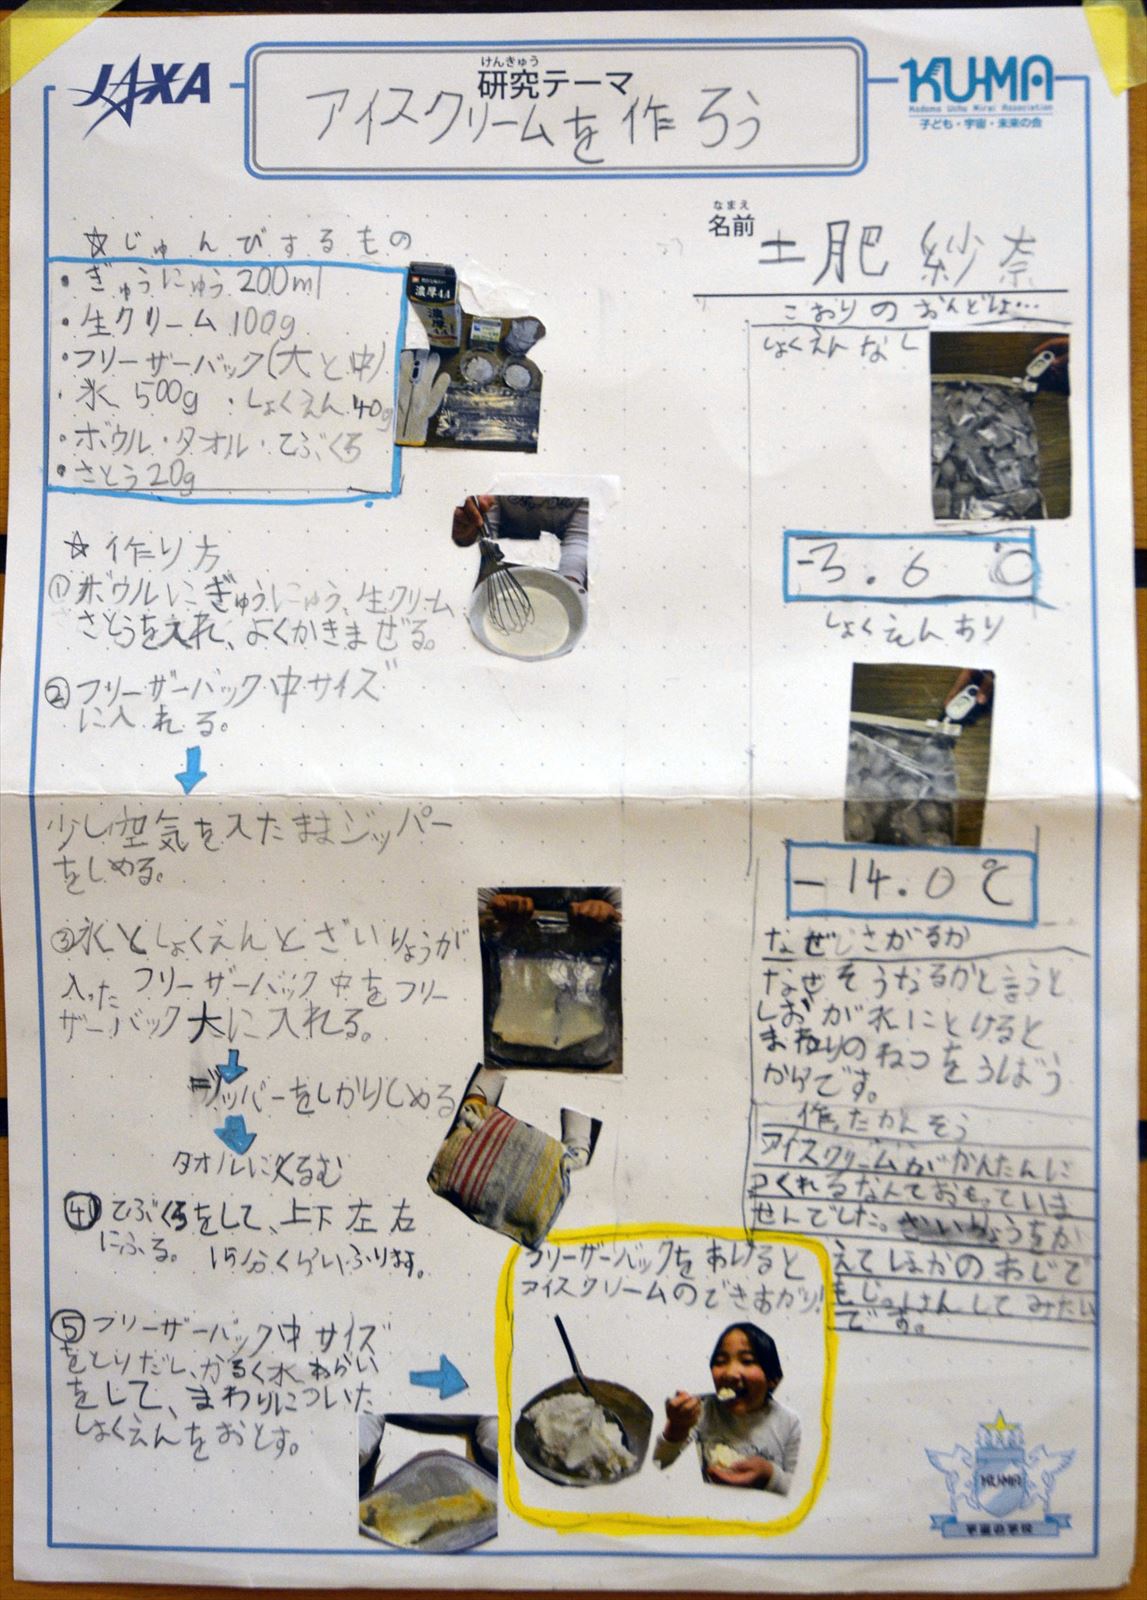 JAXA
けんきゅう
研究テーマ
アイスクリームを作ろう
KUMA
Kodomo Uchu Mirai Association
子ども・宇宙・未来の会
なまえ
名前 土肥 紗奈
☆じゅんびするもの
・ぎゅうにゅう 200ml
・生クリーム 100g
・フリーザーバック(大と中)
・氷 500g ・しょくえん 40g
・ボウル・タオル・てぶくろ
・さとう20g
濃厚4.4
☆作り方
①ボウルにぎゅうにゅう、生クリーム
さとうを入れ、よくかきまぜる。
②フリーザーバック中サイズ
に入れる。
少し空気を入たままジッパー
をしめる。
③氷としょくえんとざいりょうが
入った フリーザーバック中をフリー
ザーバック大に入れる。
ジッパーをしかりしめる
タオルにくるむ
④てぶくろをして、上下左右
にふる。 15分くらいふります。
⑤フリーザーバック中サイズ
をとりだし、かるく水あらい
をして、まわりについた
しょくえんをおとす。
フリーザーバックをあけると
アイスクリームのできあがり!
こおりのおんどは…
しょくえんなし
-3.6 ℃
しょくえんあり
-14.0℃
なぜじさがるか
なぜそうなるかと言うと
しおが氷にとけると
まわりのねつをうばう
からです。
作ったかんそう
アイスクリームがかんたんに
つくれるなんておもっていま
せんでした。ざいりょうをか
えてほかのあじで
もじっけんしてみたい
です。
KUMA
宇宙の学校